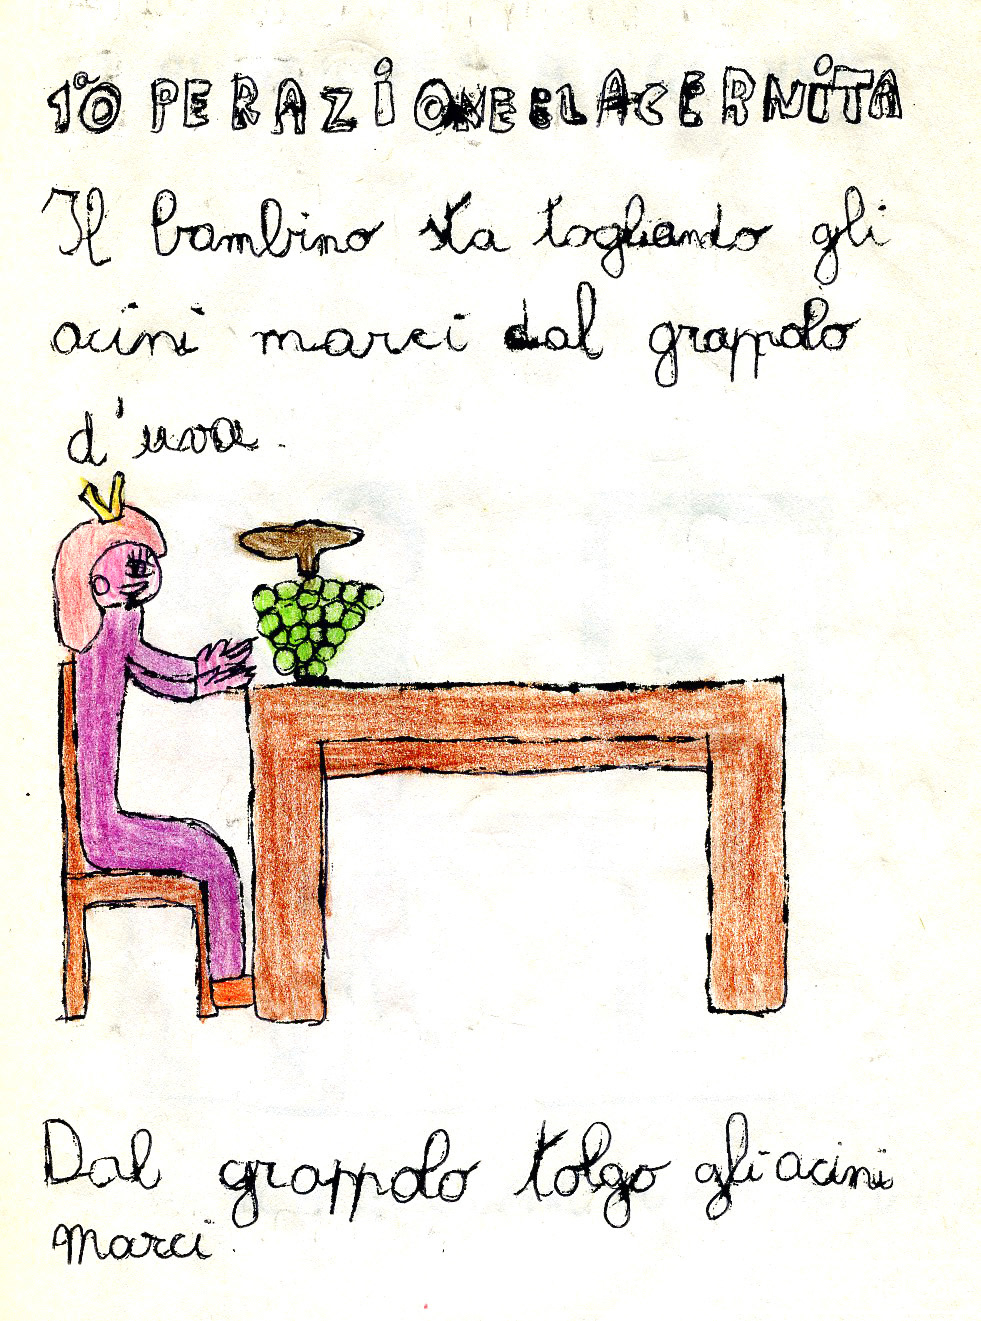 1° OPERAZIONE LA CERNITA
Il bambino sta togliando gli
acini marci dal grappolo
d'uva.
Dal grappolo tolgo gli acini
marci.